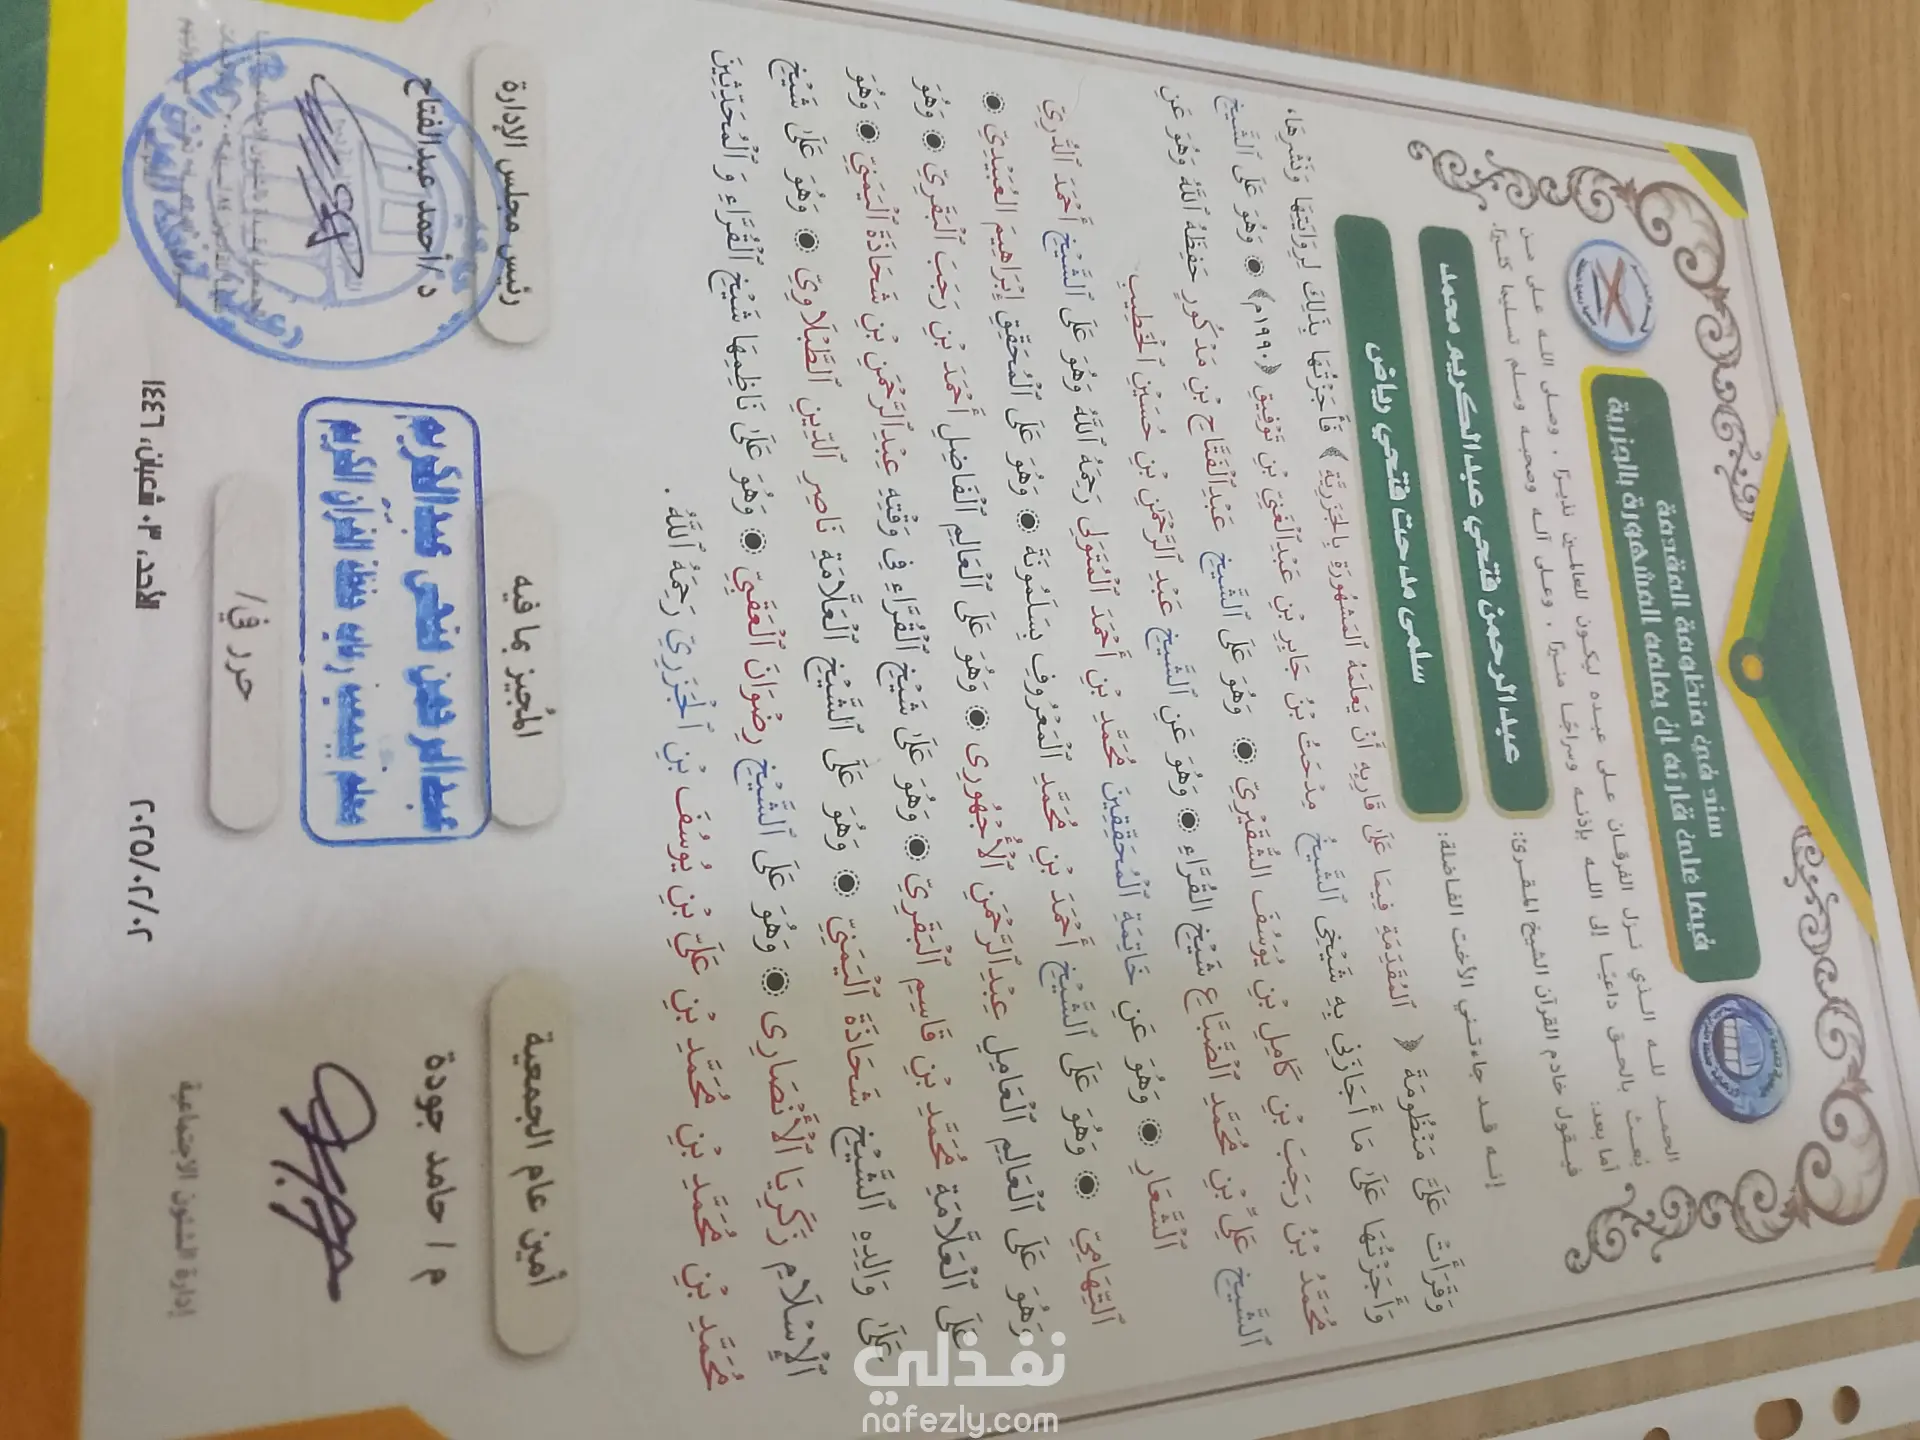 سند في منظومة المقدمة
فيما على قارئه أن يعلمه المشهورة بالجزرية
الحمد لله الذي نزل الفرقان على عبده ليكون للعالمين نذيرًا ، وصلى الله على من
بُعث بالحق داعيًا إلى الله بإذنه وسراجًا منيرًا ، وعلى آله وصحبه وسلم تسليما كثيرًا.
أما بعد:
فيقول خادم القرآن الشيخ المقرئ:
عبدالرحمن فتحي عبدالكريم محمد
إنه قد جاءتني الأخت الفاضلة:
سلمى مدحت فتحي رياض
وَقَرَأَتْ عَلَيَّ مَنْظُومَةَ ﴿ ٱلْمُقَدِّمَةِ فِيمَا عَلَىٰ قَارِئِهِ أَنْ يَعْلَمَهُ ٱلْمَشْهُورَةِ بِالْجَزَرِيَّةِ ﴾ فَأَجَزْتُهَا بِذَٰلِكَ لِرِوَايَتِهَا وَنَشْرِهَا،
وَأَجَزْتُهَا عَلَىٰ مَا أَجَازَنِي بِهِ شَيْخِي ٱلشَّيْخُ مِدْحَتُ بْنُ جَابِرِ بْنِ عَبْدِالْغَنِيِّ بْنِ تَوْفِيقٍ ﴿١٩٩٠م﴾ ◉ وَهُوَ عَلَى ٱلشَّيْخِ
مُحَمَّدُ بْنُ رَجَبَ بْنِ كَامِلِ بْنِ يُوسُفَ الشُّقَيْرِيِّ ◉ وَهُوَ عَلَى ٱلشَّيْخِ عَبْدِالْفَتَّاحِ بْنِ مَدْكُورٍ حَفِظَهُ ٱللَّهُ وَهُوَ عَنِ
ٱلشَّيْخِ عَلِيِّ بْنِ مُحَمَّدٍ ٱلضَّبَّاعِ شَيْخِ القُرَّاءِ ◉ وَهُوَ عَنِ ٱلشَّيْخِ عَبْدِ ٱلرَّحْمَٰنِ بْنِ حُسَيْنٍ ٱلْخَطِيبِ
ٱلشَّعَّارِ ◉ وَهُوَ عَنِ خَاتِمَةِ ٱلْمُحَقِّقِينَ مُحَمَّدِ بْنِ أَحْمَدَ ٱلْمُتَوَلِّي رَحِمَهُ ٱللَّهُ وَهُوَ عَلَى ٱلشَّيْخِ أَحْمَدَ ٱلدُّرِّيِّ
ٱلتِّهَامِيِّ ◉ وَهُوَ عَلَى ٱلشَّيْخِ أَحْمَدَ بْنِ مُحَمَّدٍ ٱلْمَعْرُوفِ بِسَلَمُونَةَ ◉ وَهُوَ عَلَى ٱلْمُحَقِّقِ إِبْرَاهِيمَ الْعُبَيْدِيِّ ◉
وَهُوَ عَلَى ٱلْعَالِمِ ٱلْعَامِلِ عَبْدِالرَّحْمَٰنِ ٱلْأُجْهُورِي ◉ وَهُوَ عَلَى ٱلْعَالِمِ ٱلْفَاضِلِ أَحْمَدَ بْنِ رَجَبَ ٱلْبَقَرِيِّ ◉ وَهُوَ
عَلَى ٱلْعَلَّامَةِ مُحَمَّدِ بْنِ قَاسِمٍ ٱلْبَقَرِيِّ ◉ وَهُوَ عَلَىٰ شَيْخِ ٱلْقُرَّاءِ فِي وَقْتِهِ عَبْدِالرَّحْمَٰنِ بْنِ شَحَاذَةَ ٱلْيَمَنِيِّ ◉ وَهُوَ
عَلَىٰ وَالِدِهِ ٱلشَّيْخِ شَحَاذَةَ ٱلْيَمَنِيِّ ◉ وَهُوَ عَلَى ٱلشَّيْخِ ٱلْعَلَّامَةِ نَاصِرِ ٱلدِّينِ ٱلطَّبَلَاوِيِّ ◉ وَهُوَ عَلَىٰ شَيْخِ
ٱلْإِسْلَامِ زَكَرِيَّا ٱلْأَنْصَارِى ◉ وَهُوَ عَلَى ٱلشَّيْخِ رِضْوَانَ ٱلْعُقَبِيِّ ◉ وَهُوَ عَلَىٰ نَاظِمِهَا شَيْخِ ٱلْقُرَّاءِ وَٱلْمُحَدِّثِينَ
مُحَمَّدِ بْنِ مُحَمَّدِ بْنِ مُحَمَّدِ بْنِ عَلِيِّ بْنِ يُوسُفَ بْنِ ٱلْجَزَرِيِّ رَحِمَهُ ٱللَّهُ .
أمين عام الجمعية
المُجيز بما فيه
رئيس مجلس الإدارة
م / حامد جودة
عبدالرحمن فتحى عبدالكريم
د/أحمد عبدالفتاح
حرر في/
الأحد، ٠٣ شعبان، ١٤٤٦
٢٠٢٥/٠٢/٠٢
إدارة الشئون الاجتماعية
نفذلي
nafezly.com